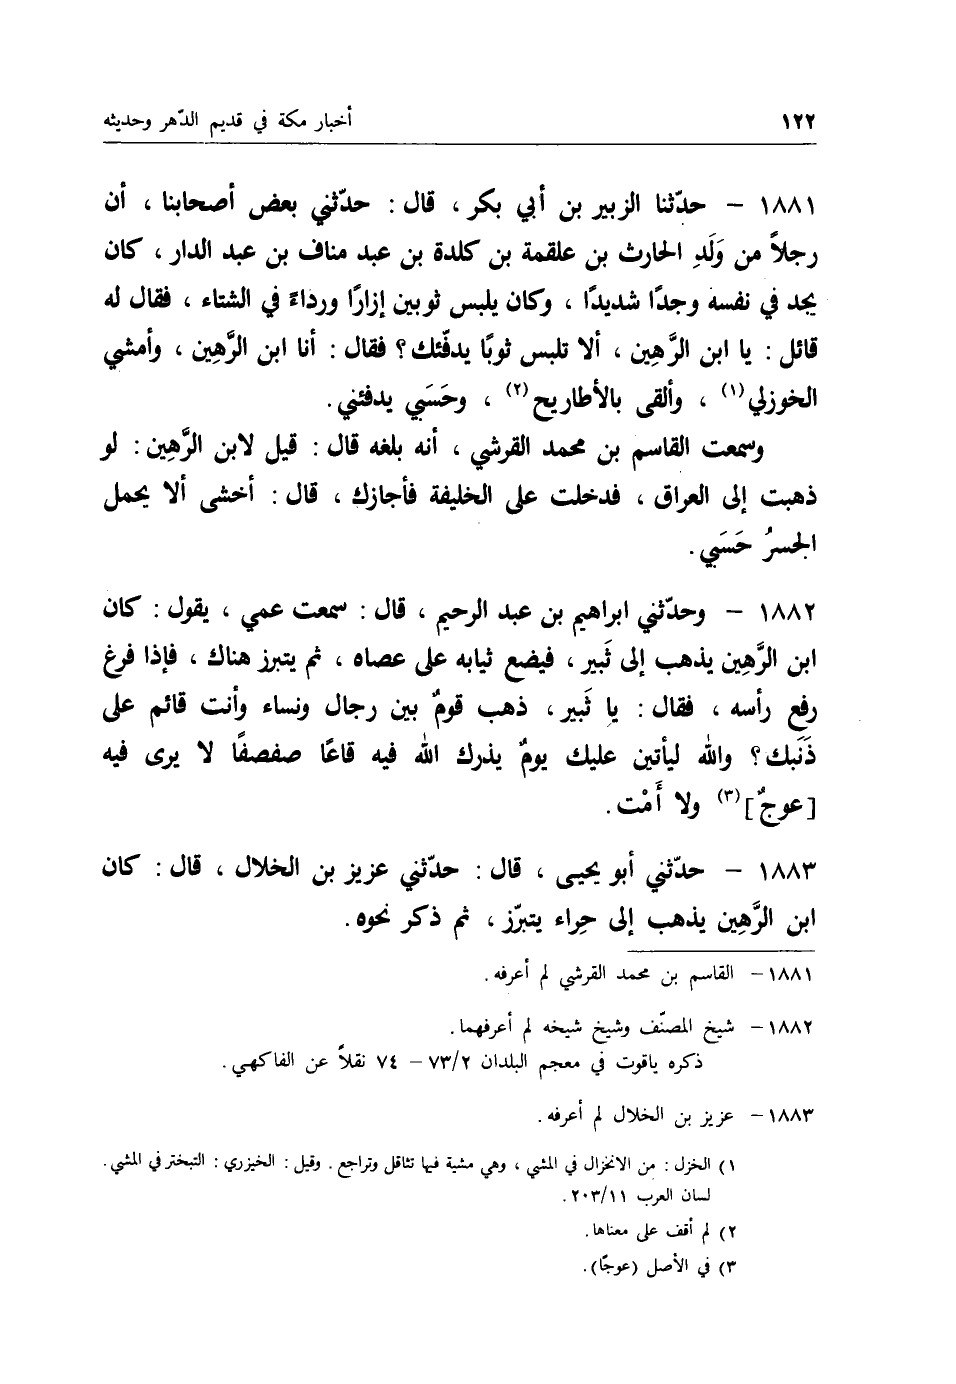 ١٢٢ أخبار مكة في قديم الدّهر وحديثه
١٨٨١ – حدّثنا الزبير بن أبي بكر ، قال : حدّثني بعض أصحابنا ، أن
رجلاً من وَلَدِ الحارث بن علقمة بن كلدة بن عبد مناف بن عبد الدار ، كان
يجد في نفسه وجدًا شديدًا ، وكان يلبس ثوبين إزارًا ورداءً في الشتاء ، فقال له
قائل : يا ابن الرَّهِين ، ألا تلبس ثوبًا يدفّئك ؟ فقال : أنا ابن الرَّهِين ، وأمشي
الخوزلي (١) ، وألقى بالأطاريح (٢) ، وحَسَبي يدفئني .
وسمعت القاسم بن محمد القرشي ، أنه بلغه قال : قيل لابن الرَّهِين : لو
ذهبت إلى العراق ، فدخلت على الخليفة فأجازك ، قال : أخشى ألا يحمل
الجسرُ حَسَبي .
١٨٨٢ – وحدّثني ابراهيم بن عبد الرحيم ، قال : سمعت عمي ، يقول : كان
ابن الرَّهِين يذهب إلى ثَبير ، فيضع ثيابه على عصاه ، ثم يتبرز هناك ، فإذا فرغ
رفع رأسه ، فقال : يا ثَبير ، ذهب قومٌ بين رجال ونساء وأنت قائم على
ذَنَبك ؟ والله ليأتين عليك يومٌ يذرك الله فيه قاعًا صفصفًا لا يرى فيه
[عوجٌ] (٣) ولا أَمْت .
١٨٨٣ – حدّثني أبو يحيى ، قال : حدّثني عزيز بن الخلال ، قال : كان
ابن الرَّهِين يذهب إلى حِراء يتبرّز ، ثم ذكر نحوه .
١٨٨١ – القاسم بن محمد القرشي لم أعرفه .
١٨٨٢ – شيخ المصنّف وشيخ شيخه لم أعرفهما .
ذكره ياقوت في معجم البلدان ٧٣/٢ – ٧٤ نقلاً عن الفاكهي .
١٨٨٣ – عزيز بن الخلال لم أعرفه .
١) الخزل : من الانخزال في المشي ، وهي مشية فيها تثاقل وتراجع . وقيل : الخيزري : التبختر في المشي .
لسان العرب ٢٠٣/١١ .
٢) لم أقف على معناها .
٣) في الأصل (عوجًا) .